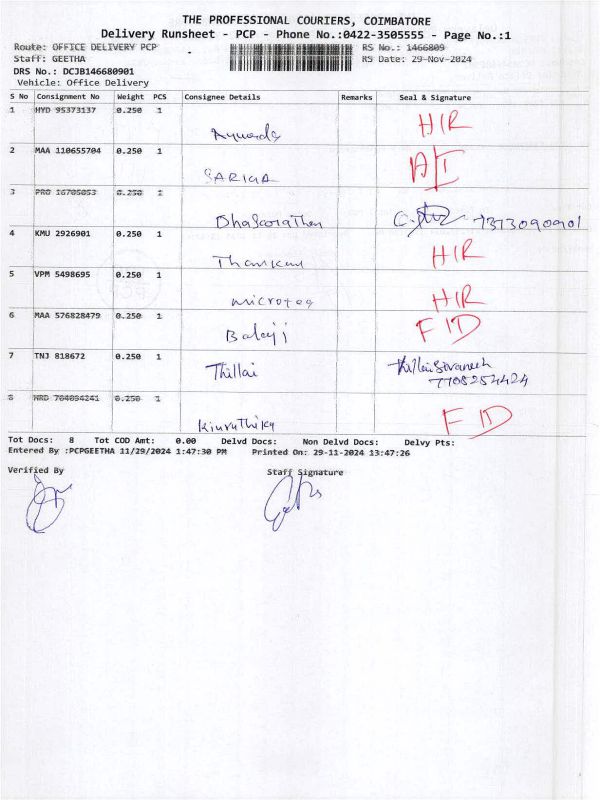 THE PROFESSIONAL COURIERS, COIMBATORE
Delivery Runsheet - PCP - Phone No.:0422-3505555 - Page No.:1
Route: OFFICE DELIVERY PCP RS No.: 1466809
Staff: GEETHA RS Date: 29-Nov-2024
DRS No.: DCJB146680901
Vehicle: Office Delivery
S No Consignment No Weight PCS Consignee Details Remarks Seal & Signature
1 HYD 95373137 0.250 1 HIR
2 MAA 110655704 1 SARIGA
3 PRO 16705053 0.250 1 7373090901
4 KMU 2926901 0.250 1 HIR
5 VPM 5498695 0.250 1 HIR
6 MAA 576828479 0.250 1 Balaji FID
7 TNJ 818672 0.250 1 Thillai
7708254424
8 0.250 1 Kiruthika FID
Tot Docs: 8 Tot COD Amt: 0.00 Delvd Docs: Non Delvd Docs: Delvy Pts:
Entered By :PCPGEETHA 11/29/2024 1:47:30 PM Printed On: 29-11-2024 13:47:26
Verified By Staff Signature